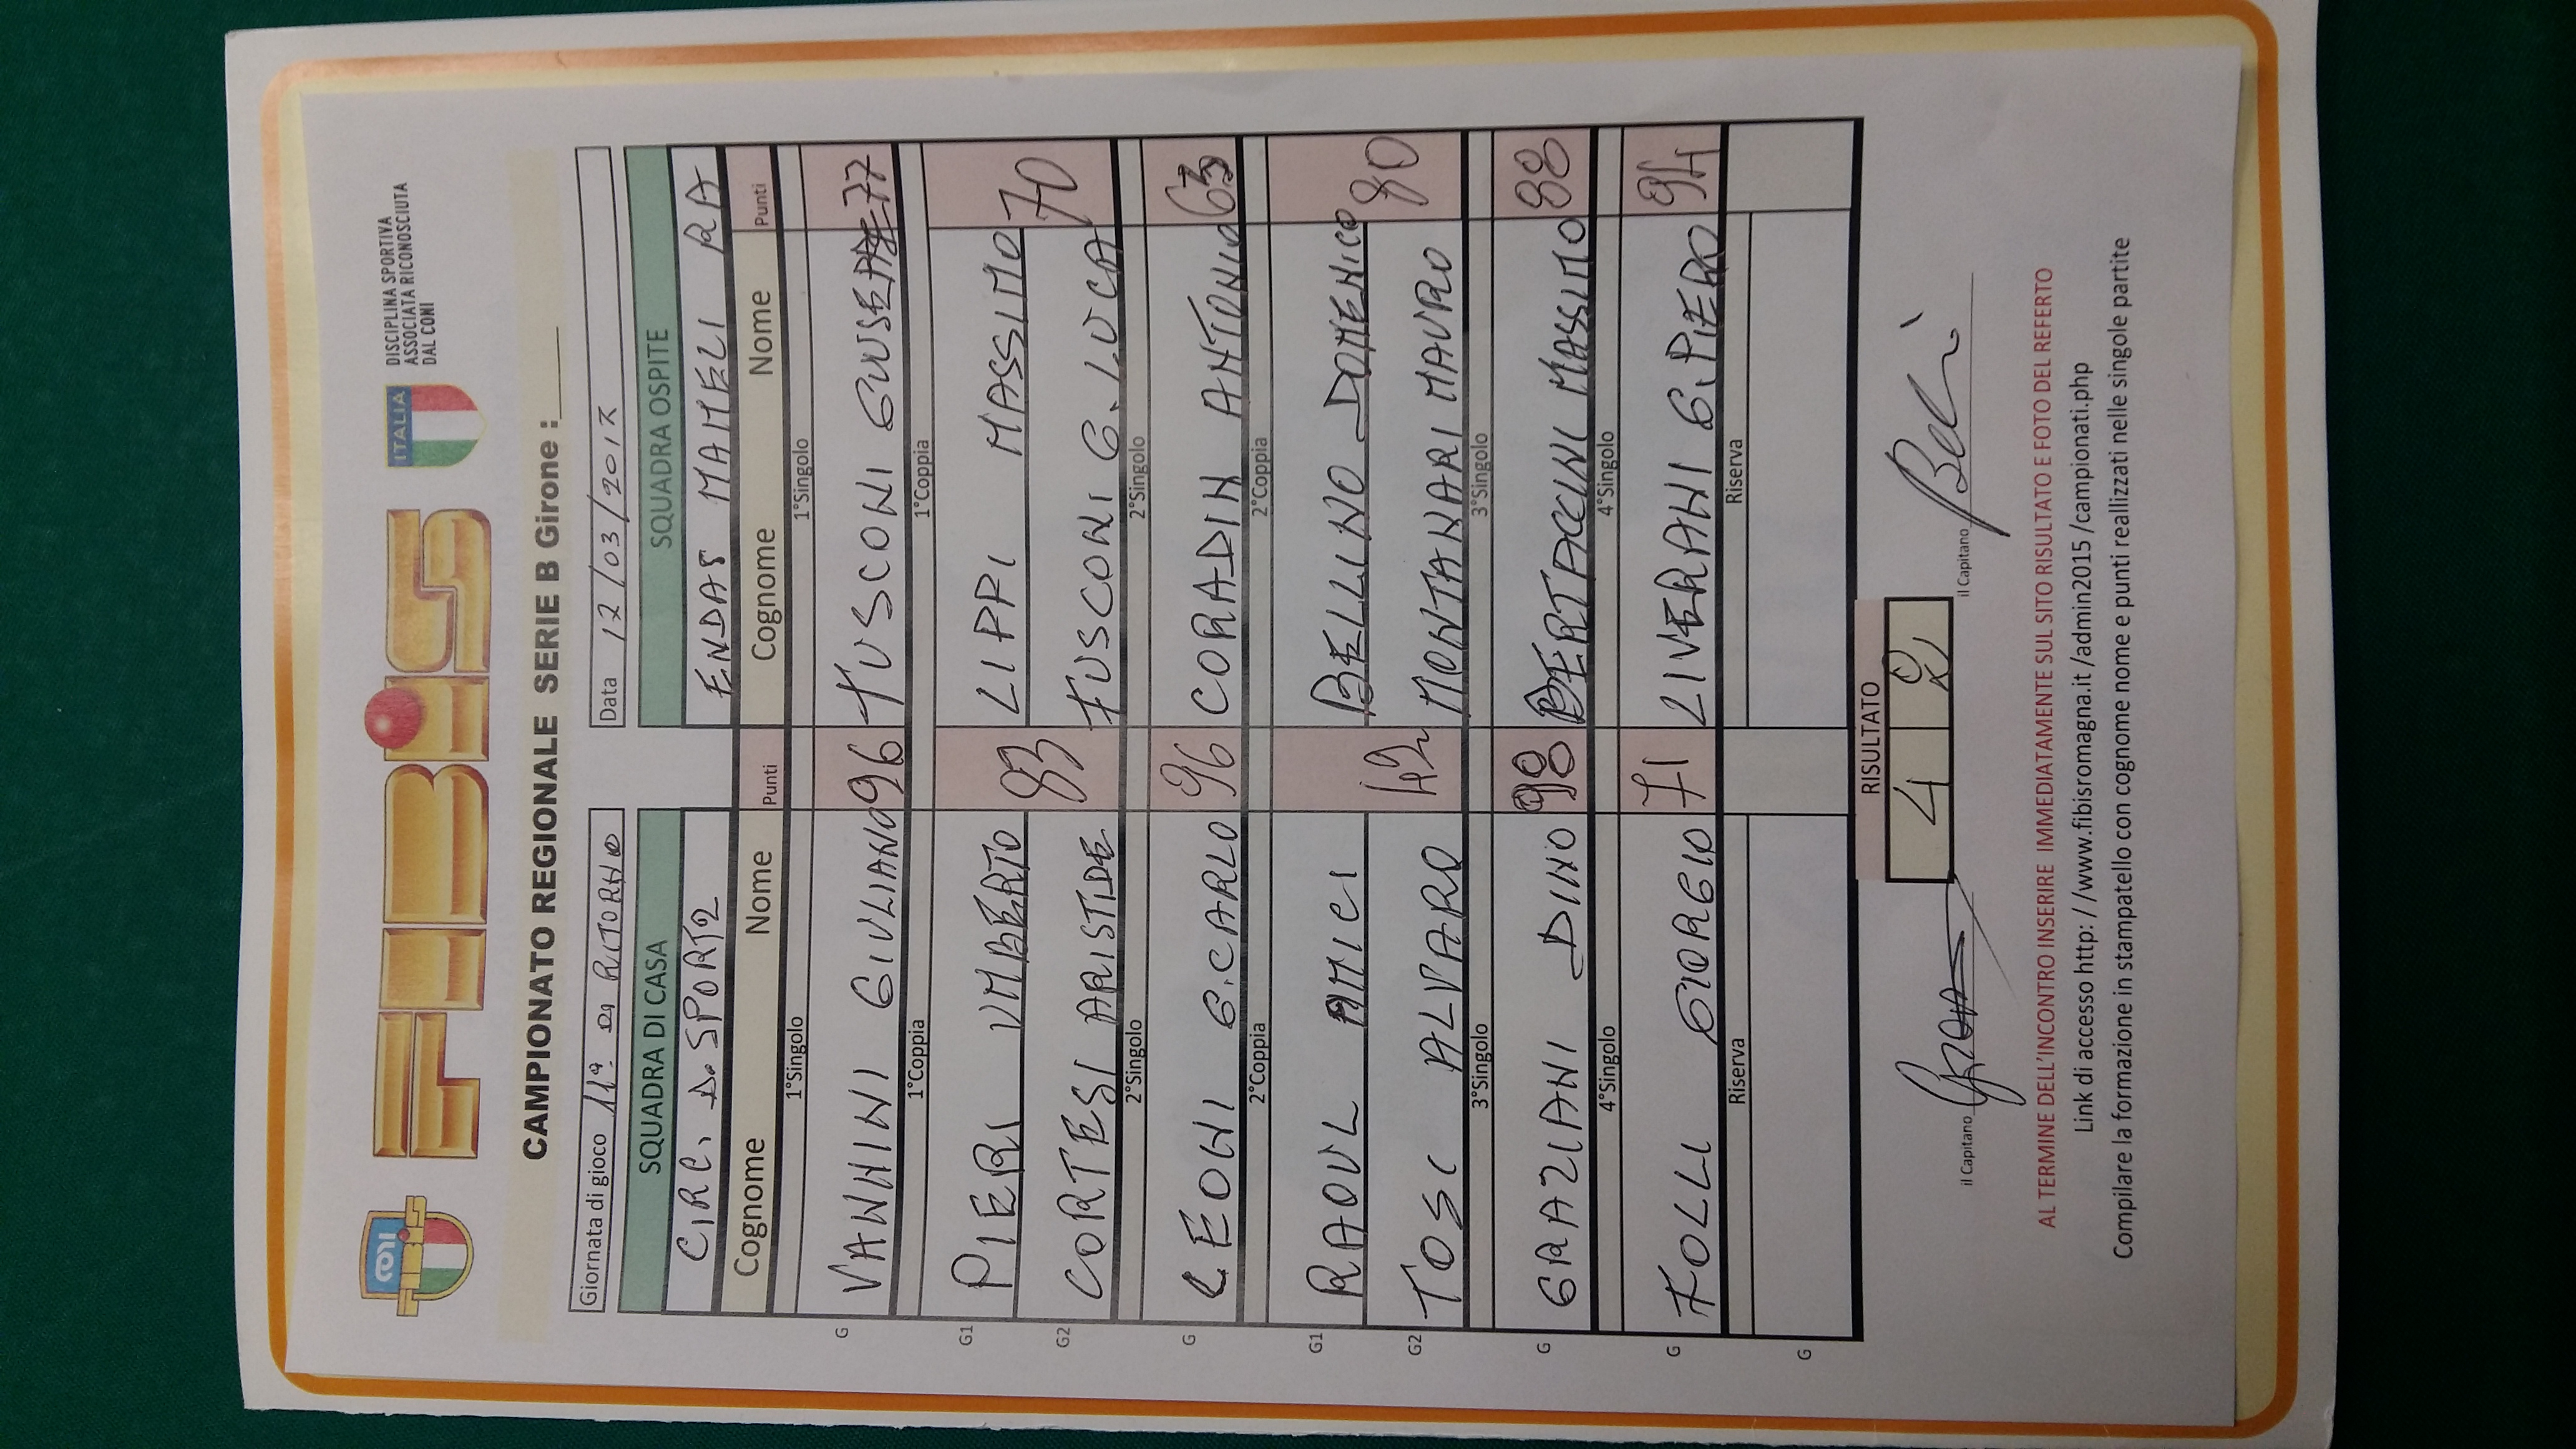 CONI
FIBIS
FIBIS
ITALIA
DISCIPLINA SPORTIVA
ASSOCIATA RICONOSCIUTA
DAL CONI
CAMPIONATO REGIONALE SERIE B Girone :____
Giornata di gioco 11° DI RITORNO Data 17/03/2017
SQUADRA DI CASA SQUADRA OSPITE
CIRC. D. SPORT2 ENDAS MAMELI RA
Cognome Nome Punti Cognome Nome Punti
1°Singolo 1°Singolo
G VANNINI GIULIANO 96 FUSCONI 77
1°Coppia 1°Coppia
G1 PIERI UMBERTO LIPPI MASSIMO
G2 CORTESI ARISTIDE 83 FUSCONI G. LUCA 70
2°Singolo 2°Singolo
G LEONI G. CARLO 96 CORADIN ANTONIO 63
2°Coppia 2°Coppia
G1 RAOUL AMICI BELLINO DOMENICO
G2 TOSI ALVARO 42 MONTANARI MAURO 80
3°Singolo 3°Singolo
G GRAZIANI DINO 98 BERTACCINI MASSIMO 88
4°Singolo 4°Singolo
G FOLLI GIORGIO 71 LIVERANI G. PIERO 94
Riserva Riserva
G
RISULTATO
4 2
il Capitano il Capitano
AL TERMINE DELL'INCONTRO INSERIRE IMMEDIATAMENTE SUL SITO RISULTATO E FOTO DEL REFERTO
Link di accesso http: //www.fibisromagna.it /admin2015 /campionati.php
Compilare la formazione in stampatello con cognome nome e punti reallizzati nelle singole partite